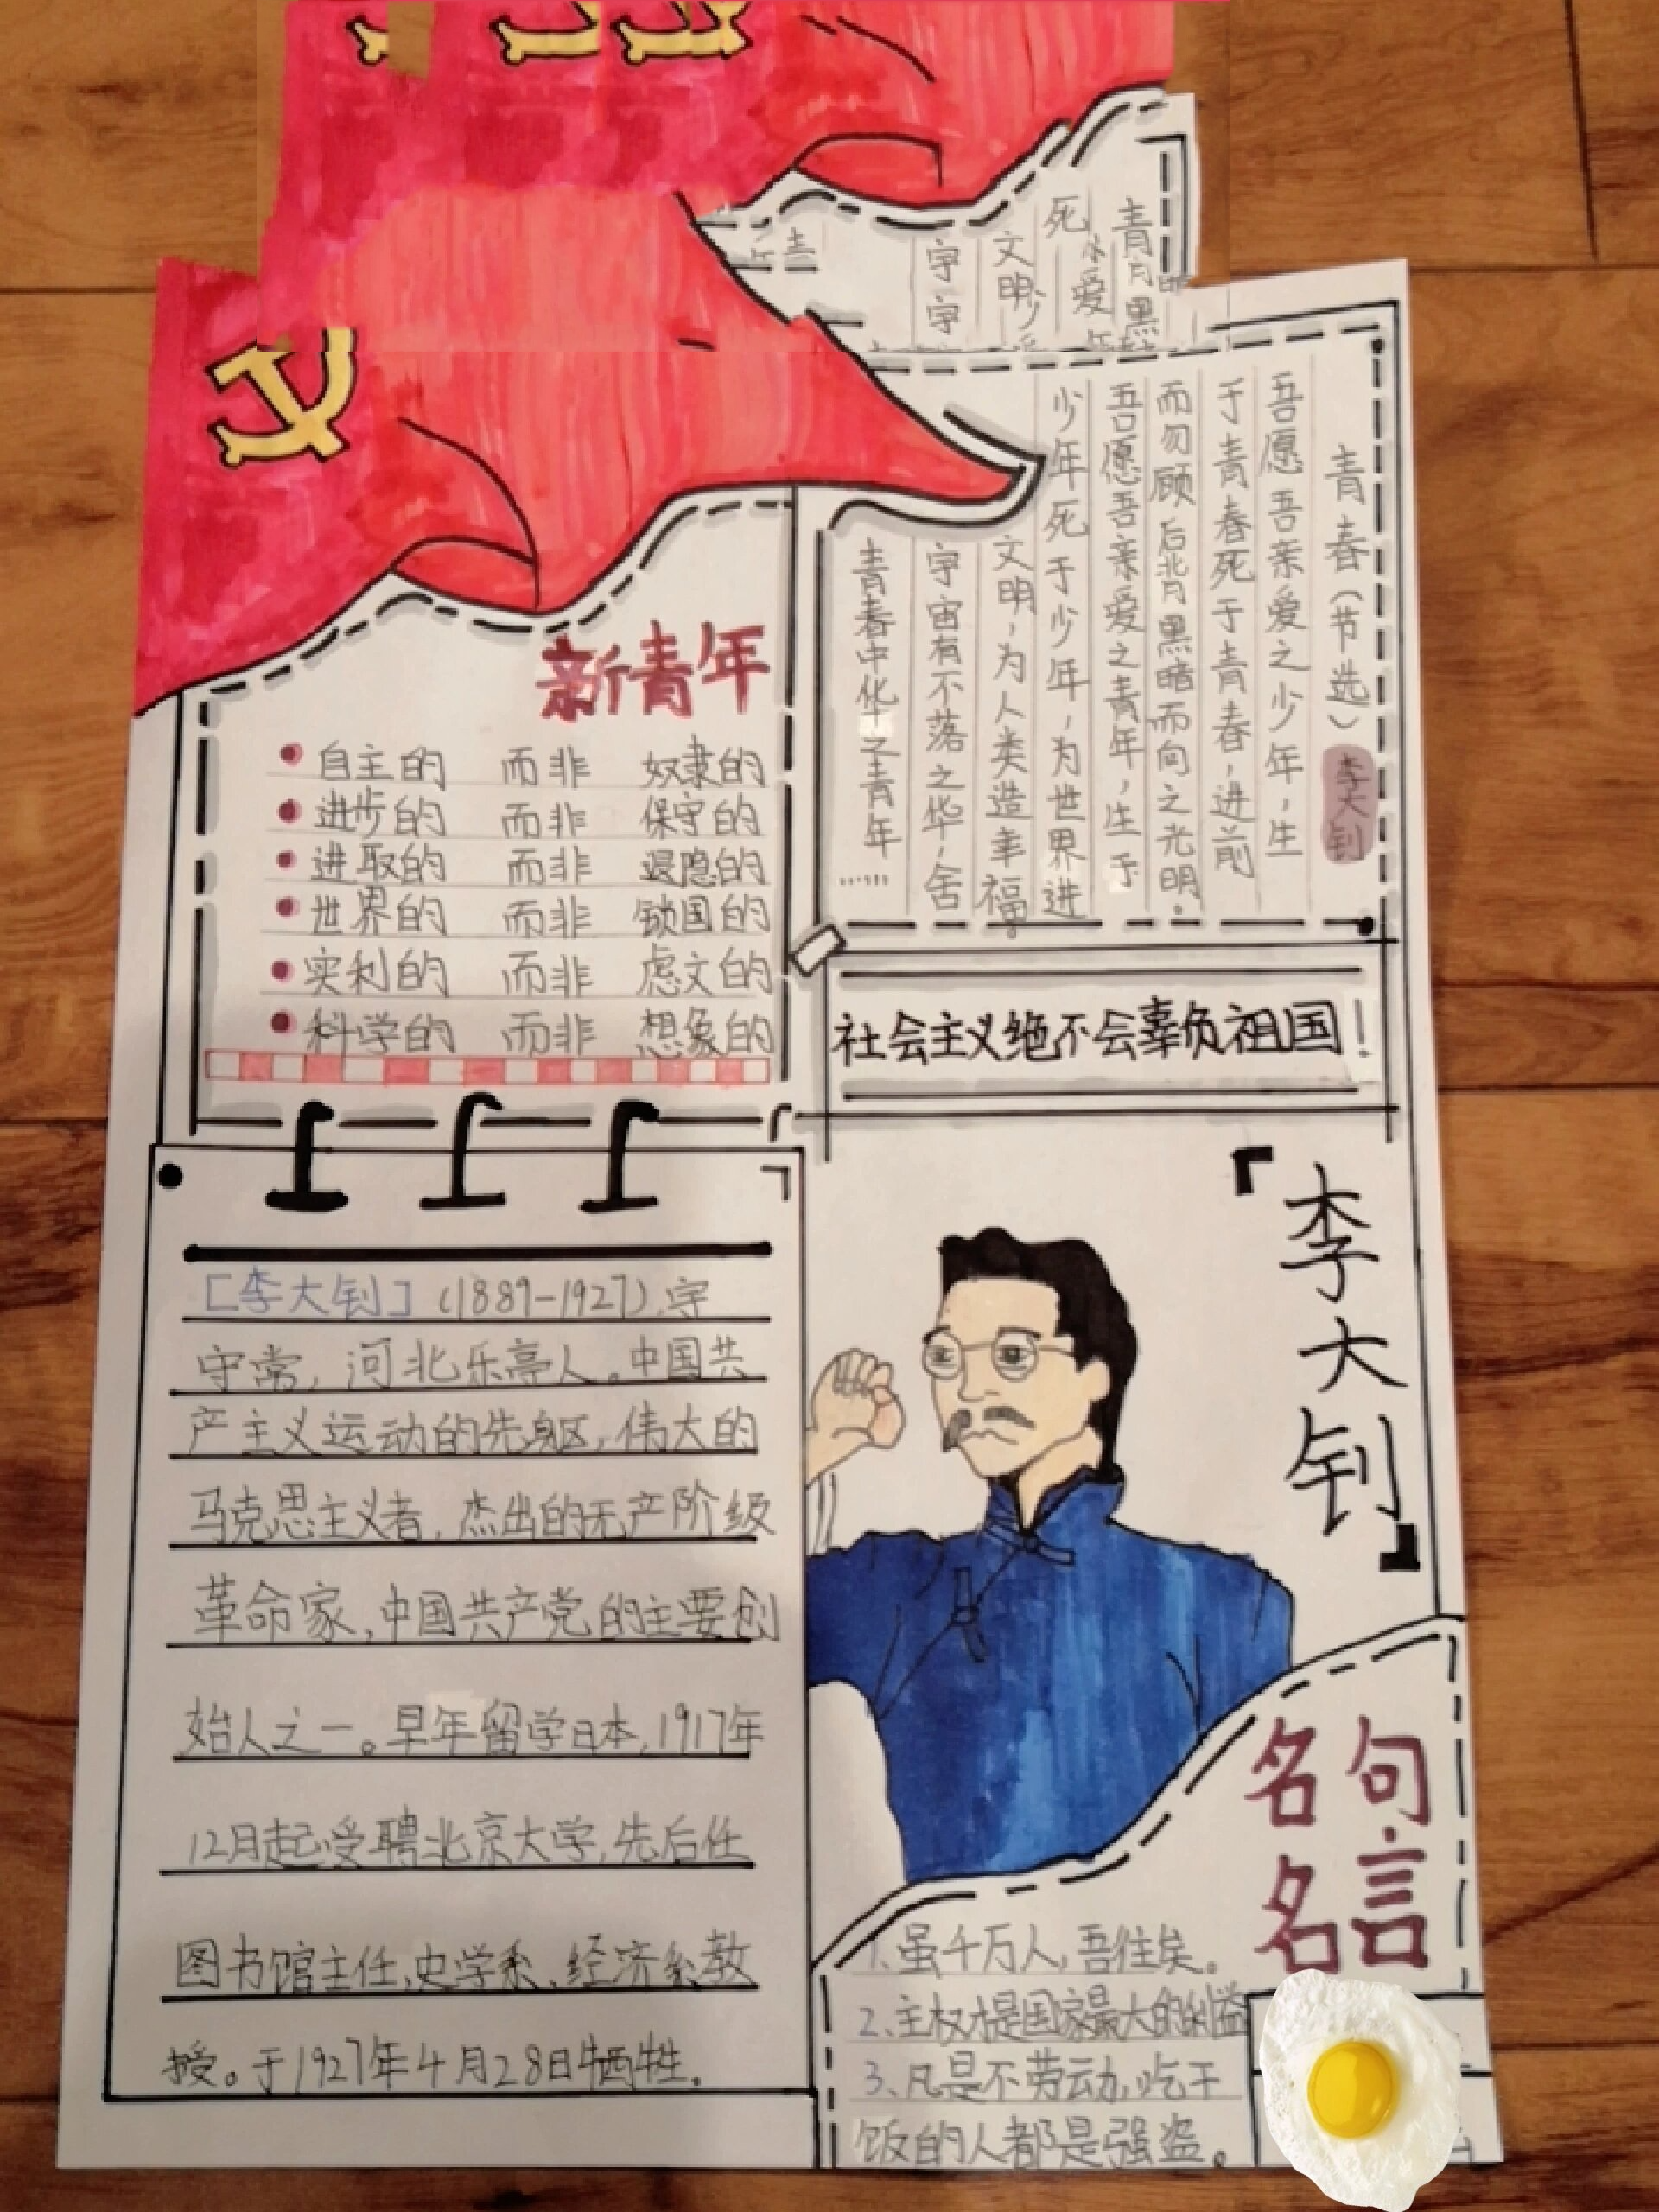 新青年
自主的 而非 奴隶的
进步的 而非 保守的
进取的 而非 退隐的
世界的 而非 锁国的
实利的 而非 虑文的
科学的 而非 想象的
青春(节选) 李大钊
吾愿吾亲爱之少年,生
于青春死于青春,进前
而勿顾后背黑暗而向之光明。
吾愿吾亲爱之青年,生于
少年死于少年,为世界进
文明,为人类造幸福。
宇宙有不落之华,舍
青春中华之青年……
社会主义绝不会辜负祖国!
[李大钊](1889-1927),字
守常,河北乐亭人。中国共
产主义运动的先驱,伟大的
马克思主义者,杰出的无产阶级
革命家,中国共产党的主要创
始人之一。早年留学日本,1917年
12月起受聘北京大学,先后任
图书馆主任,史学系、经济系教
授。于1927年4月28日牺牲。
「李大钊」
名句
名言
1.虽千万人,吾往矣。
2、主权才是国家最大的利益
3、凡是不劳动,吃干
饭的人都是强盗。